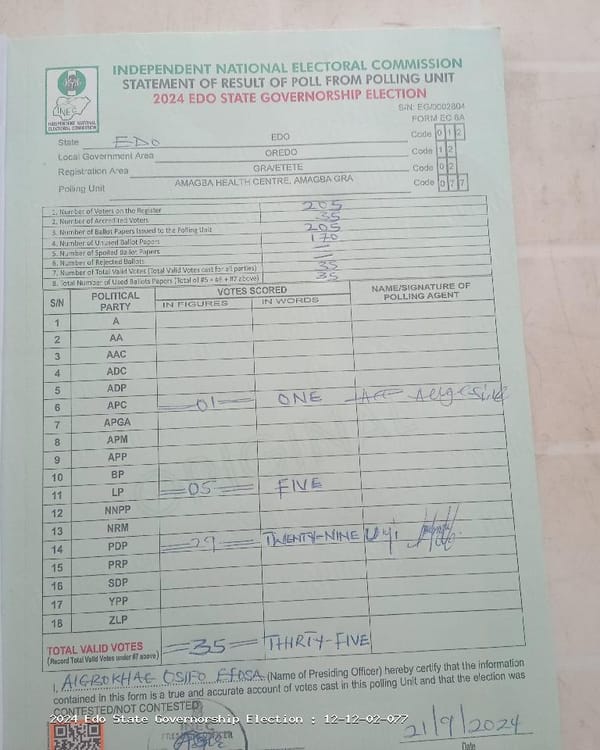 INDEPENDENT NATIONAL ELECTORAL COMMISSION
STATEMENT OF RESULT OF POLL FROM POLLING UNIT
2024 EDO STATE GOVERNORSHIP ELECTION
S/N: EG/0002804
FORM EC 8A
INEC
INDEPENDENT NATIONAL ELECTORAL COMMISSION
State EDO EDO Code 0 1 2
Local Government Area OREDO Code 1 2
Registration Area GRA/ETETE Code 0 2
Polling Unit AMAGBA HEALTH CENTRE, AMAGBA GRA Code 0 7 7
1. Number of Voters on the Register 205
2. Number of Accredited Voters 35
3. Number of Ballot Papers Issued to the Polling Unit 205
4. Number of Unused Ballot Papers 170
5. Number of Spoiled Ballot Papers =
6. Number of Rejected Ballots =
7. Number of Total Valid Votes (Total Valid Votes cast for all parties) 35
8. Total Number of Used Ballots Papers (Total of #5 + #6 + #7 above) 35
S/N POLITICAL PARTY VOTES SCORED NAME/SIGNATURE OF POLLING AGENT
IN FIGURES IN WORDS
1 A
2 AA
3 AAC
4 ADC
5 ADP
6 APC =01= ONE
7 APGA
8 APM
9 APP
10 BP
11 LP =05= FIVE
12 NNPP
13 NRM
14 PDP =29= TWENTY-NINE Uyi
15 PRP
16 SDP
17 YPP
18 ZLP
TOTAL VALID VOTES =35= THIRTY-FIVE
(Record Total Valid Votes under #7 above)
I, AIGBOKHAE OSIFO EFOSA (Name of Presiding Officer) hereby certify that the information
contained in this form is a true and accurate account of votes cast in this polling Unit and that the election was
CONTESTED/NOT CONTESTED
2024 Edo State Governorship Election : 12-12-02-077
21/9/2024
Date